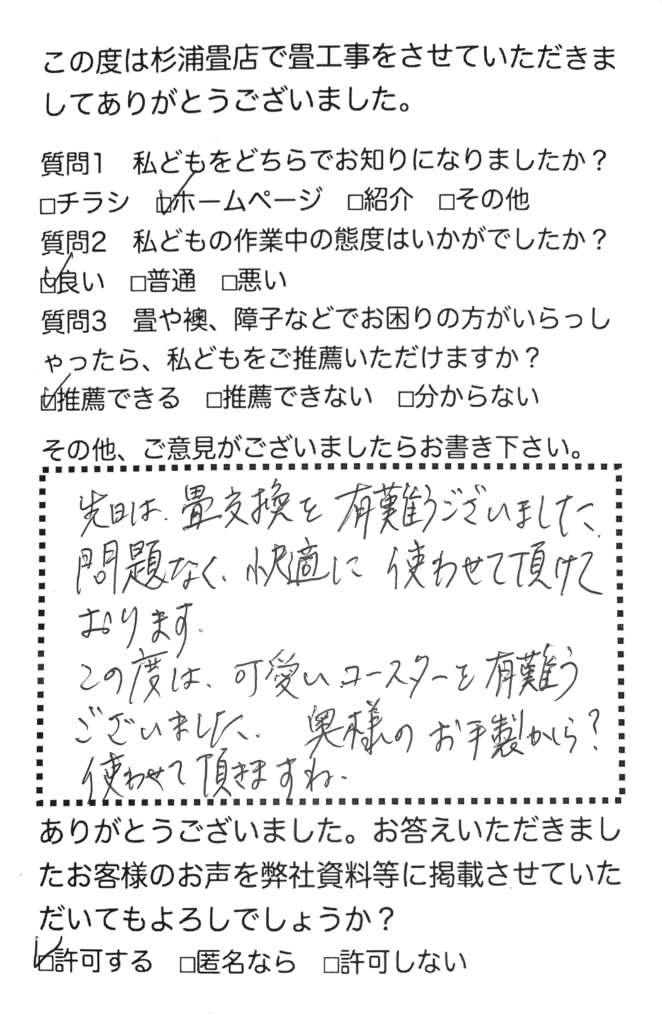 この度は杉浦畳店で畳工事をさせていただきま
してありがとうございました。
質問1 私どもをどちらでお知りになりましたか？
□チラシ ☑ホームページ □紹介 □その他
質問2 私どもの作業中の態度はいかがでしたか？
☑良い □普通 □悪い
質問3 畳や襖、障子などでお困りの方がいらっし
ゃったら、私どもをご推薦いただけますか？
☑推薦できる □推薦できない □分からない
その他、ご意見がございましたらお書き下さい。
先日は、畳交換を有難うございました、
問題なく、快適に使わせて頂けて
おります。
この度は、可愛いコースターを有難う
ございました。奥様のお手製かしら？
使わせて頂きますね。
ありがとうございました。お答えいただきまし
たお客様のお声を弊社資料等に掲載させていた
だいてもよろしでしょうか？
☑許可する □匿名なら □許可しない